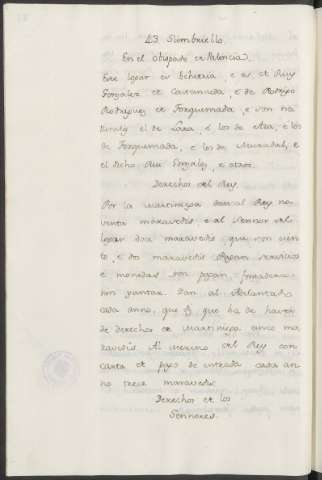 43 Siembriello.
En el obispado de Palencia.
Este logar es behetria, e es de Ruy
Gonzalez de Castanneda, e de Rodrigo
Rodriguez de Torquemada, e son na
turales el de Lara, e los de Aza, e los
de Torquemada, e los de
el dicho Ruy Gonzalez, e otros.
Derechos del Rey.
Por la martiniega dan al Rey no
venta maravedis e al Sennor del
logar dos maravedis que son cien
to, e dos maravedis Pagan servicios
e monedas non pagan fonsadera
nin yantar. Dan al Adelantado
cada anno, que ha de haver
de derechos de martiniega cinco ma
ravedis Al merino del Rey con
carta de pago de entrada cada an
no trece maravedis.
Derechos de los
Sennores.